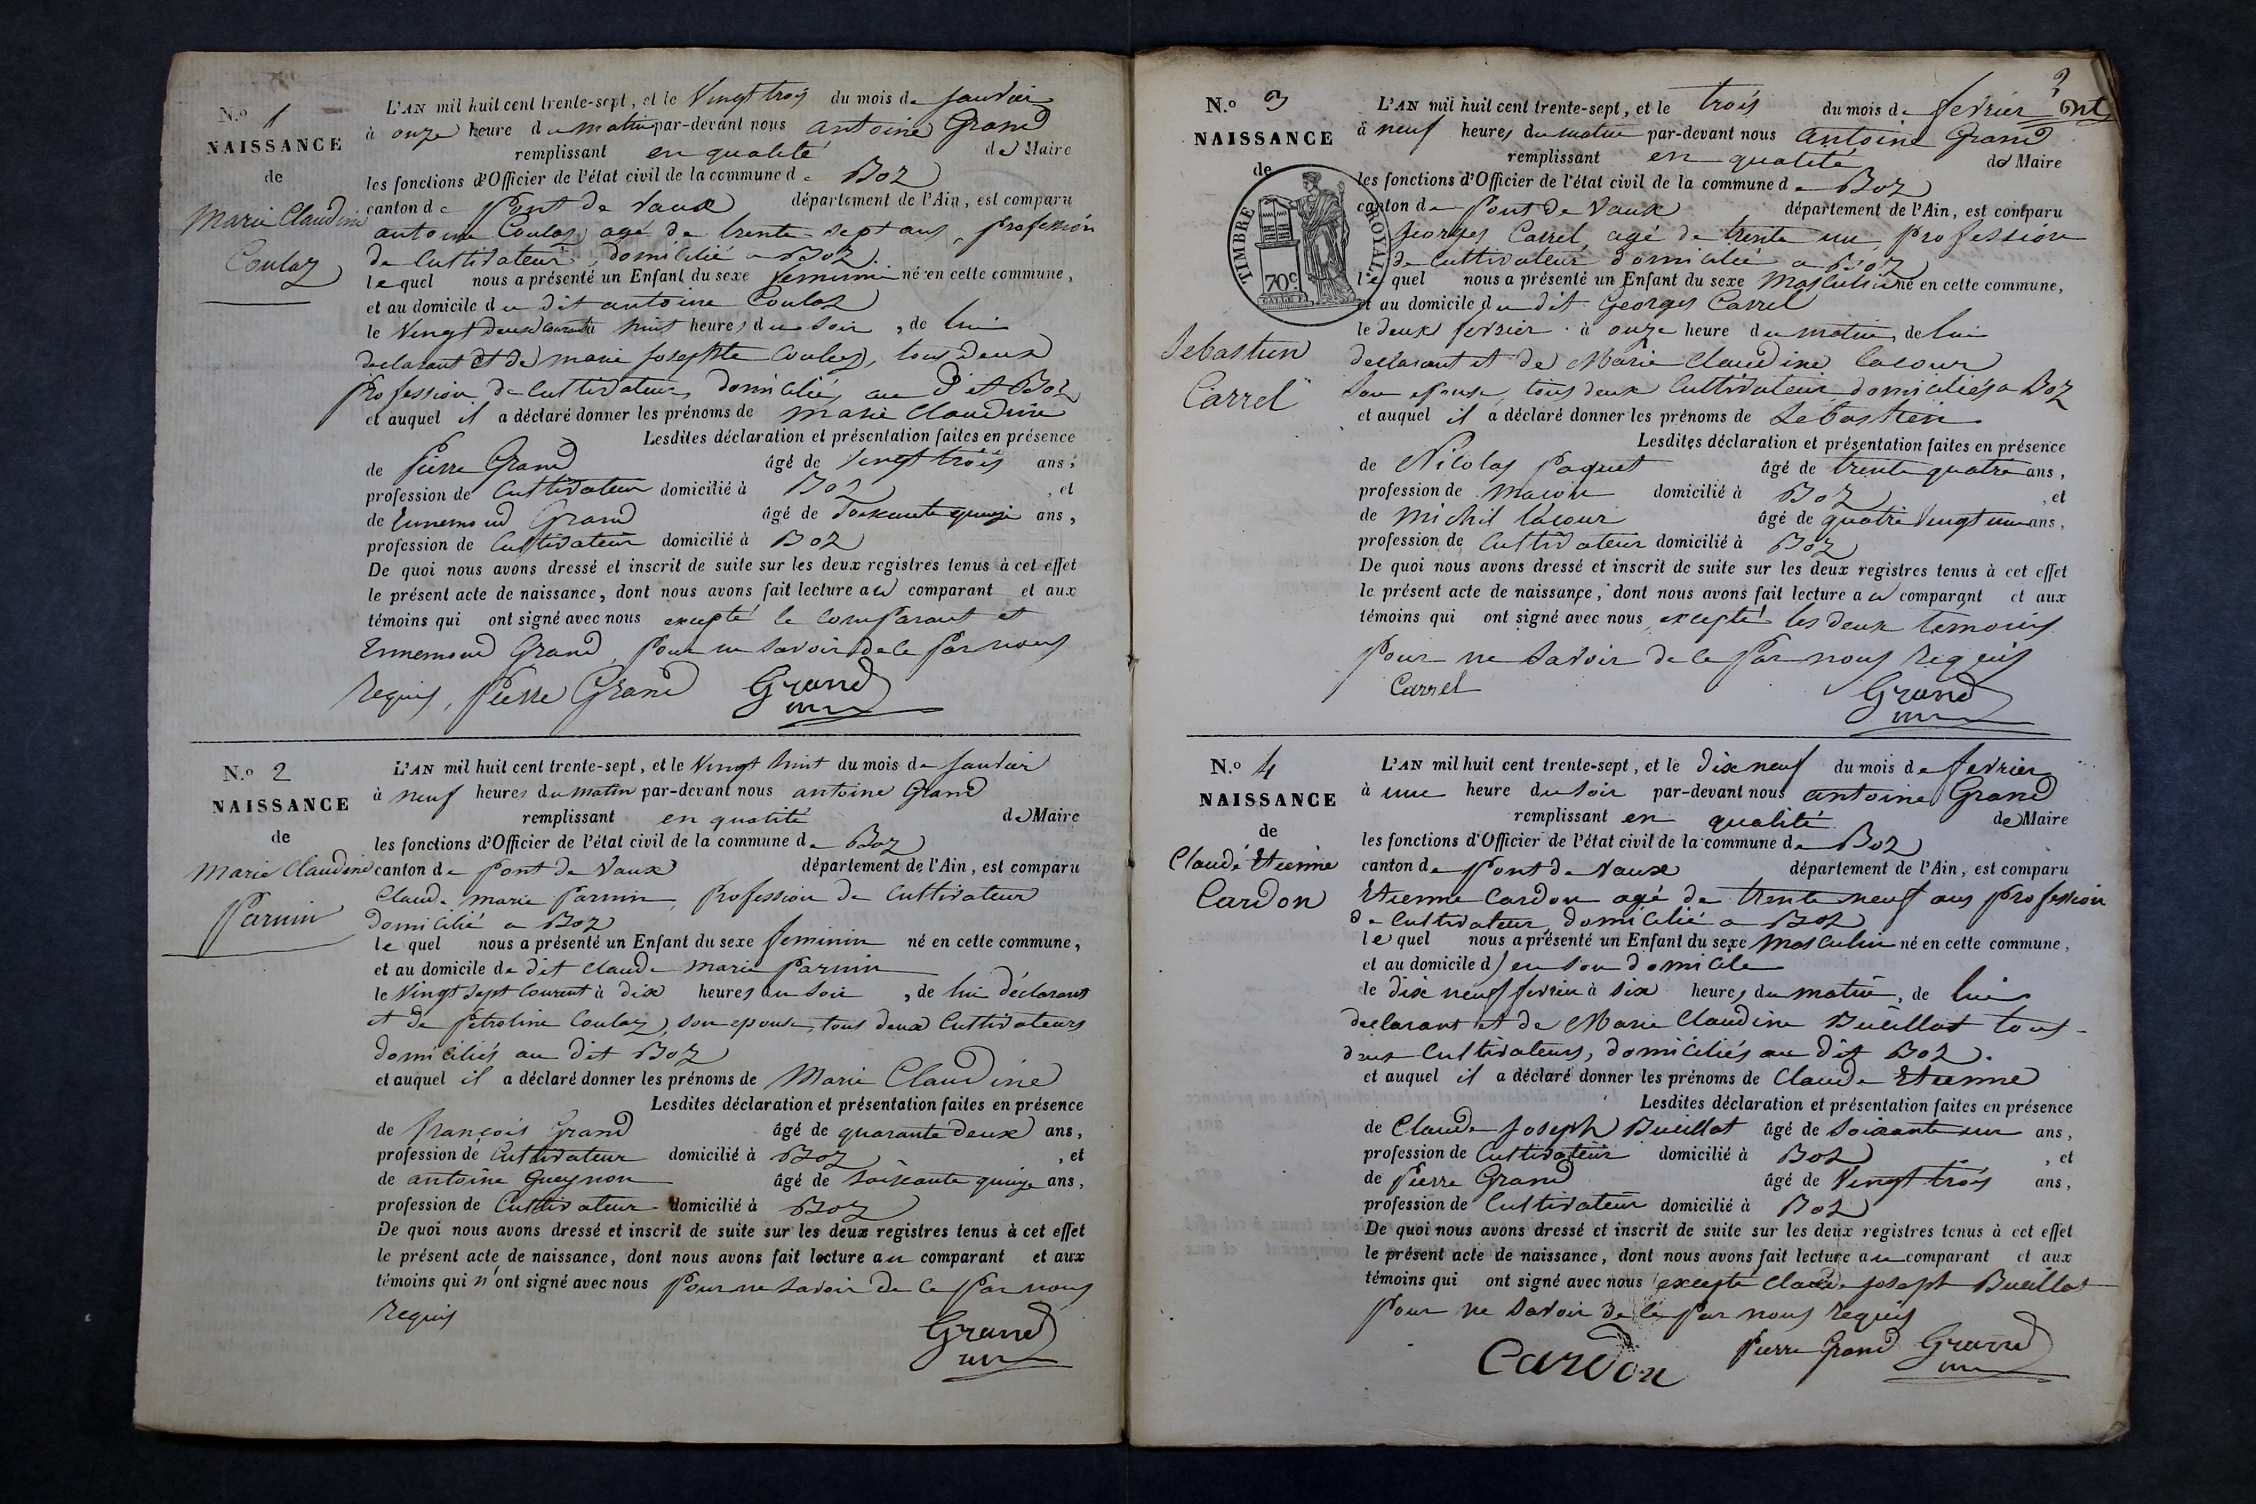 N.o 1
NAISSANCE
de
Marie Claudine
Coulaz
L'AN mil huit cent trente-sept, et le Vingt trois du mois de janvier
à onze heure du matin par-devant nous antoine Grand
remplissant en qualité de Maire
les fonctions d'Officier de l'état civil de la commune de Boz
canton de Pont de Vaux département de l'Ain, est comparu
antoine Coulas agé de trente sept ans, profession
de Cultivateur, domicilié a Boz.
lequel nous a présenté un Enfant du sexe feminin né en cette commune,
et au domicile du dit antoine Coulas
le Vingt deux courant à huit heures du soir, de lui
declarant et de marie josephte Coulas, tous deux
profession de Cultivateurs, domiciliés au dit Boz
et auquel il a déclaré donner les prénoms de marie Claudine
Lesdites déclaration et présentation faites en présence
de Pierre Grand âgé de Vingt trois ans,
profession de Cultivateur domicilié à Boz, et
de Ennemond Grand âgé de Soixante quinze ans,
profession de Cultivateur domicilié à Boz
De quoi nous avons dressé et inscrit de suite sur les deux registres tenus à cet effet
le présent acte de naissance, dont nous avons fait lecture au comparant et aux
témoins qui ont signé avec nous excepté le comparant et
Ennemond Grand, pour ne savoir de ce par nous
requis, Pierre Grand Grand
N.o 2
NAISSANCE
de
Marie Claudine
Parnin
L'AN mil huit cent trente-sept, et le Vingt huit du mois de janvier
à neuf heures du matin par-devant nous antoine Grand
remplissant en qualité de Maire
les fonctions d'Officier de l'état civil de la commune de Boz
canton de Pont de Vaux département de l'Ain, est comparu
Claude marie Parnin, profession de Cultivateur
domicilié a Boz
lequel nous a présenté un Enfant du sexe feminin né en cette commune,
et au domicile du dit claude marie Parnin
le Vingt sept courent à dix heures du soir, de lui déclarant
et de Petroline Coulaz, son epouse, tous deux Cultivateurs
domiciliés au dit Boz
et auquel il a déclaré donner les prénoms de Marie Claudine
Lesdites déclaration et présentation faites en présence
de françois Grand âgé de quarante deux ans,
profession de Cultivateur domicilié à Boz, et
de antoine Gueynon âgé de soixante quinze ans,
profession de Cultivateur domicilié à Boz
De quoi nous avons dressé et inscrit de suite sur les deux registres tenus à cet effet
le présent acte de naissance, dont nous avons fait lecture au comparant et aux
témoins qui n'ont signé avec nous pour ne savoir de ce par nous
requis
Grand
N.o 3
NAISSANCE
de
TIMBRE ROYAL
70c
Sebastien
Carrel
L'AN mil huit cent trente-sept, et le trois du mois de fevrier
à neuf heures du matin par-devant nous antoine Grand
remplissant en qualité de Maire
les fonctions d'Officier de l'état civil de la commune de Boz
canton de Pont de Vaux département de l'Ain, est comparu
Georges Carrel, agé de trente un, profession
de Cultivateur domicilié a Boz
lequel nous a présenté un Enfant du sexe Masculin né en cette commune,
et au domicile du dit Georges Carrel
le deux fevrier à onze heure du matin, de lui
declarant et de Marie Claudine Lacour
son epouse, tous deux Cultivateur domiciliés a Boz
et auquel il a déclaré donner les prénoms de Sebastien
Lesdites déclaration et présentation faites en présence
de Nicolas Paquet âgé de trente quatre ans,
profession de Macon domicilié à Boz, et
de Michel Lacour âgé de quatre Vingt un ans,
profession de Cultivateur domicilié à Boz
De quoi nous avons dressé et inscrit de suite sur les deux registres tenus à cet effet
le présent acte de naissance, dont nous avons fait lecture au comparant et aux
témoins qui ont signé avec nous excepté les deux témoins
Pour ne savoir de ce par nous requis
Carrel Grand
N.o 4
NAISSANCE
de
Claude Etienne
Cardon
L'AN mil huit cent trente-sept, et le dix neuf du mois de fevrier
à une heure du soir par-devant nous antoine Grand
remplissant en qualité de Maire
les fonctions d'Officier de l'état civil de la commune de Boz
canton de Pont de Vaux département de l'Ain, est comparu
Etienne Cardon agé de trente neuf ans profession
de Cultivateur, domicilié a Boz
lequel nous a présenté un Enfant du sexe Masculin né en cette commune,
et au domicile d en son domicile
le dix neuf fevrier à six heures du matin, de lui
declarant et de Marie Claudine Bueillot tous
deux Cultivateurs, domiciliés au dit Boz.
et auquel il a déclaré donner les prénoms de Claude Etienne
Lesdites déclaration et présentation faites en présence
de Claude Joseph Bueillot âgé de soixante un ans,
profession de Cultivateur domicilié à Boz, et
de Pierre Grand âgé de Vingt trois ans,
profession de Cultivateur domicilié à Boz
De quoi nous avons dressé et inscrit de suite sur les deux registres tenus à cet effet
le présent acte de naissance, dont nous avons fait lecture au comparant et aux
témoins qui ont signé avec nous excepté Claude joseph Bueillot
pour ne savoir de ce par nous requis
Cardon Pierre Grand Grand